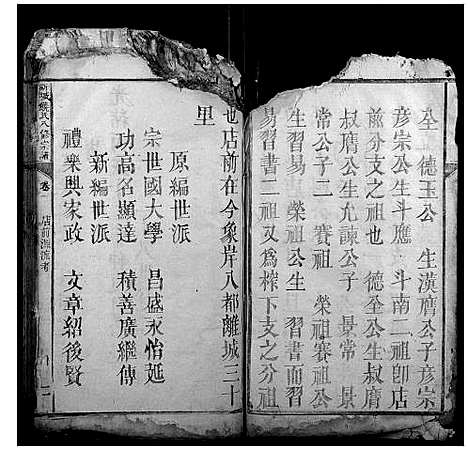 全 德玉公 生漢膺公子彦宗
彦宗公生斗應 斗南二祖卽店
前分支之祖也 德全公生叔膺
叔膺公生允諫公子 景常 景
常公子二 賽祖 榮祖賽祖公
生習易 榮祖公生 習書而習
易習書二祖又爲榨下支之分祖
也店前在今象岸八都離城三十
里
原編世派
宗世國大學 昌盛永怡延
功高名顯達 積善廣繼傳
新編世派
禮樂興家政 文章紹後賢
氏八修宗譜
卷
店前源流考